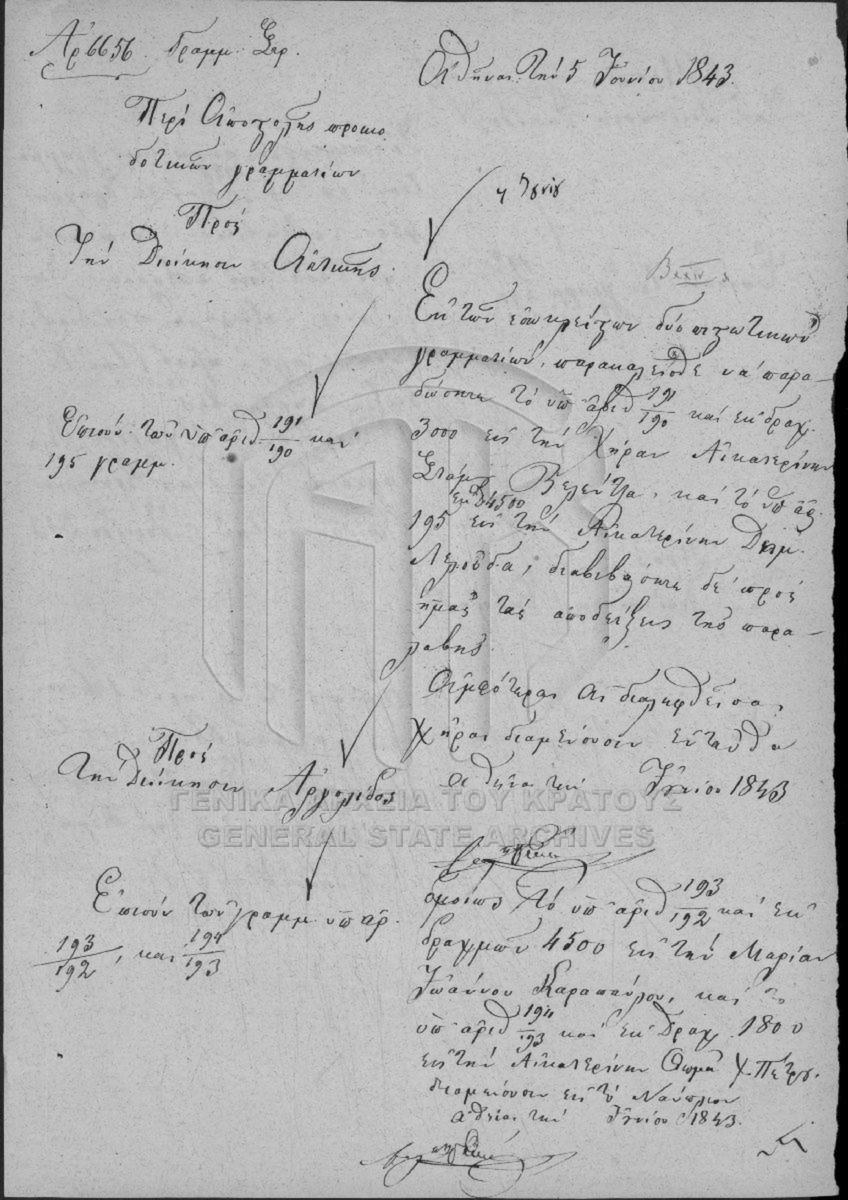 Αρ 6656. Γραμμ. Στρ.
Ἀθῆναι τὴν 5 Ἰουνίου 1843.
Περὶ Ἀποστολῆς προικο
δοτικῶν γραμματίων
Πρὸς
Τὴν Διοίκησιν Ἀττικῆς.
Ἐκ τῶν ἐσωκλείστων δύο πιστωτικῶν
γραμματίων, παρακαλεῖσθε νὰ παρα-
δώσητε τὸ ὑπ' ἀριθ 191/190 καὶ ἐκ δραχ.
3000 εἰς τὴν χήραν Αἰκατερίνην
Σταμ. Βελέντζα, καὶ τὸ ὑπ' ἀρ.
ἐκ δ 4500
195 εἰς τὴν Αἰκατερίνην Δημ.
Λελούδα, διαβιβάσητε δὲ πρὸς
ἡμᾶς τὰς ἀποδείξεις τῆς παρα-
λαβῆς.
Ἀμφότεραι αἱ διαληφθεῖσαι
χῆραι διαμένουσιν ἐνταῦθα
Ἀθῆναι τὴν Ἰουνίου 1843
Ἐπισυν. τῶν ὑπ' ἀριθ 191/190 καὶ
195 γραμμ.
Πρὸς
τὴν Διοίκησιν Ἀργολίδος
Ἐπισυν τῶν γραμμ. ὑπ' ἀρ.
193/192, καὶ 194/193
ὁμοίως τὸ ὑπ' ἀριθ 193/192 καὶ ἐκ
δραχμῶν 4500 εἰς τὴν Μαρίαν
Ἰωάννου Καραπαύλου, καὶ τὸ
ὑπ' ἀριθ 194/193 καὶ ἐκ δραχ. 1800
εἰς τὴν Αἰκατερίνην Θωμᾶ Χ. Πέτρου.
διαμένουσιν εἰς τὸ Ναύπλιον
Ἀθῆναι τὴν Ἰουνίου 1843.
ΓΕΝΙΚΑ ΑΡΧΕΙΑ ΤΟΥ ΚΡΑΤΟΥΣ
GENERAL STATE ARCHIVES